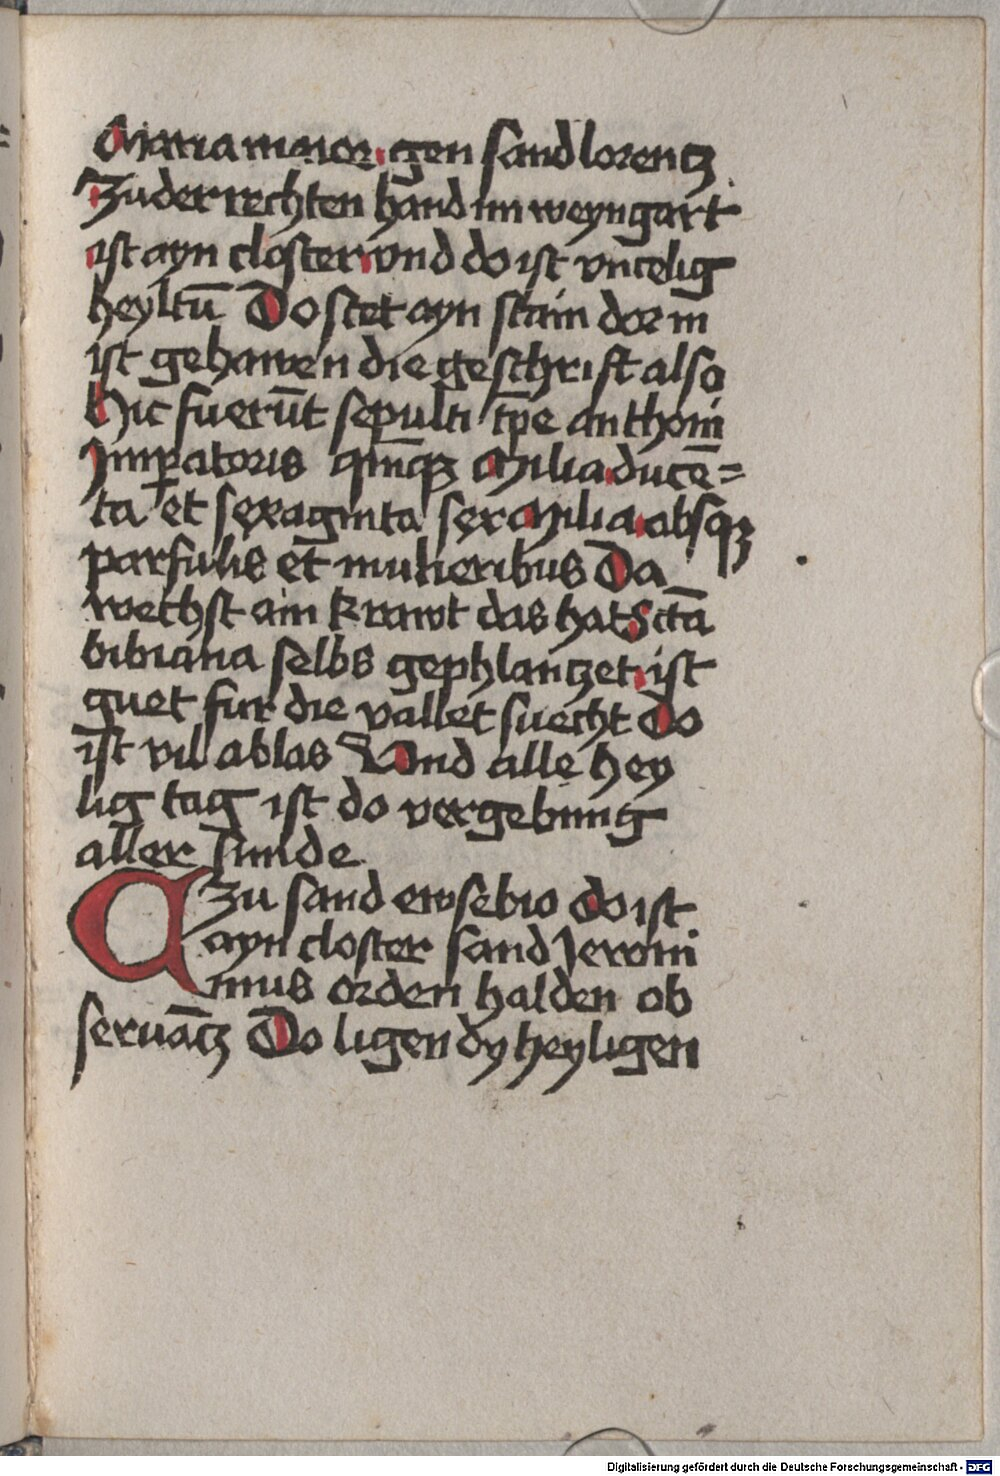 Maria maior gen sand lorentz
Zu der rechten hand im weyngart
ist ayn closter vnd do ist vncelig
heyltū Do stet ayn stain dor in
ist gehawen die geschrift also
Hic fuerūt sepulti tp̄e anthonī
Imꝑatoris qm̄qꝫ Milia ducē=
ta et sexaginta sex Milia absqꝫ
parfulis et mulieribus Da
wechst ain krawt das hat Sctā
bibiana selbs gephlantzet ist
guet fur die vallet suecht Do
ist vil ablas Vnd alle hey
lig tag ist do vergebung
aller sunde
Zu sand ewsebio do ist
ayn closter sand Jeroni
mus orden halden ob
seruātz Do ligen dy heyligen
Digitalisierung gefördert durch die Deutsche Forschungsgemeinschaft - DFG